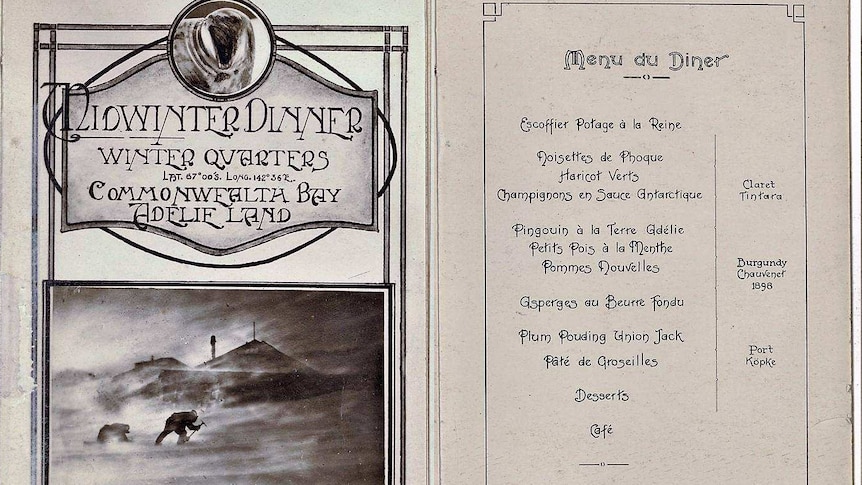 Midwinter Dinner
Winter Quarters
Lat. 67°00'S. Long. 142°36'E.
Commonwealth Bay
Adélie Land
Menu du Diner
Escoffier Potage à la Reine
Noisettes de Phoque
Haricot Verts
Champignons en Sauce Antarctique
Claret
Tintara
Pingouin à la Terre Adélie
Petits Pois à la Menthe
Pommes Nouvelles
Burgundy
Chauvenet
1898
Asperges au Beurre Fondu
Plum Pouding Union Jack
Pâté de Groseilles
Port
Köpke
Desserts
Café